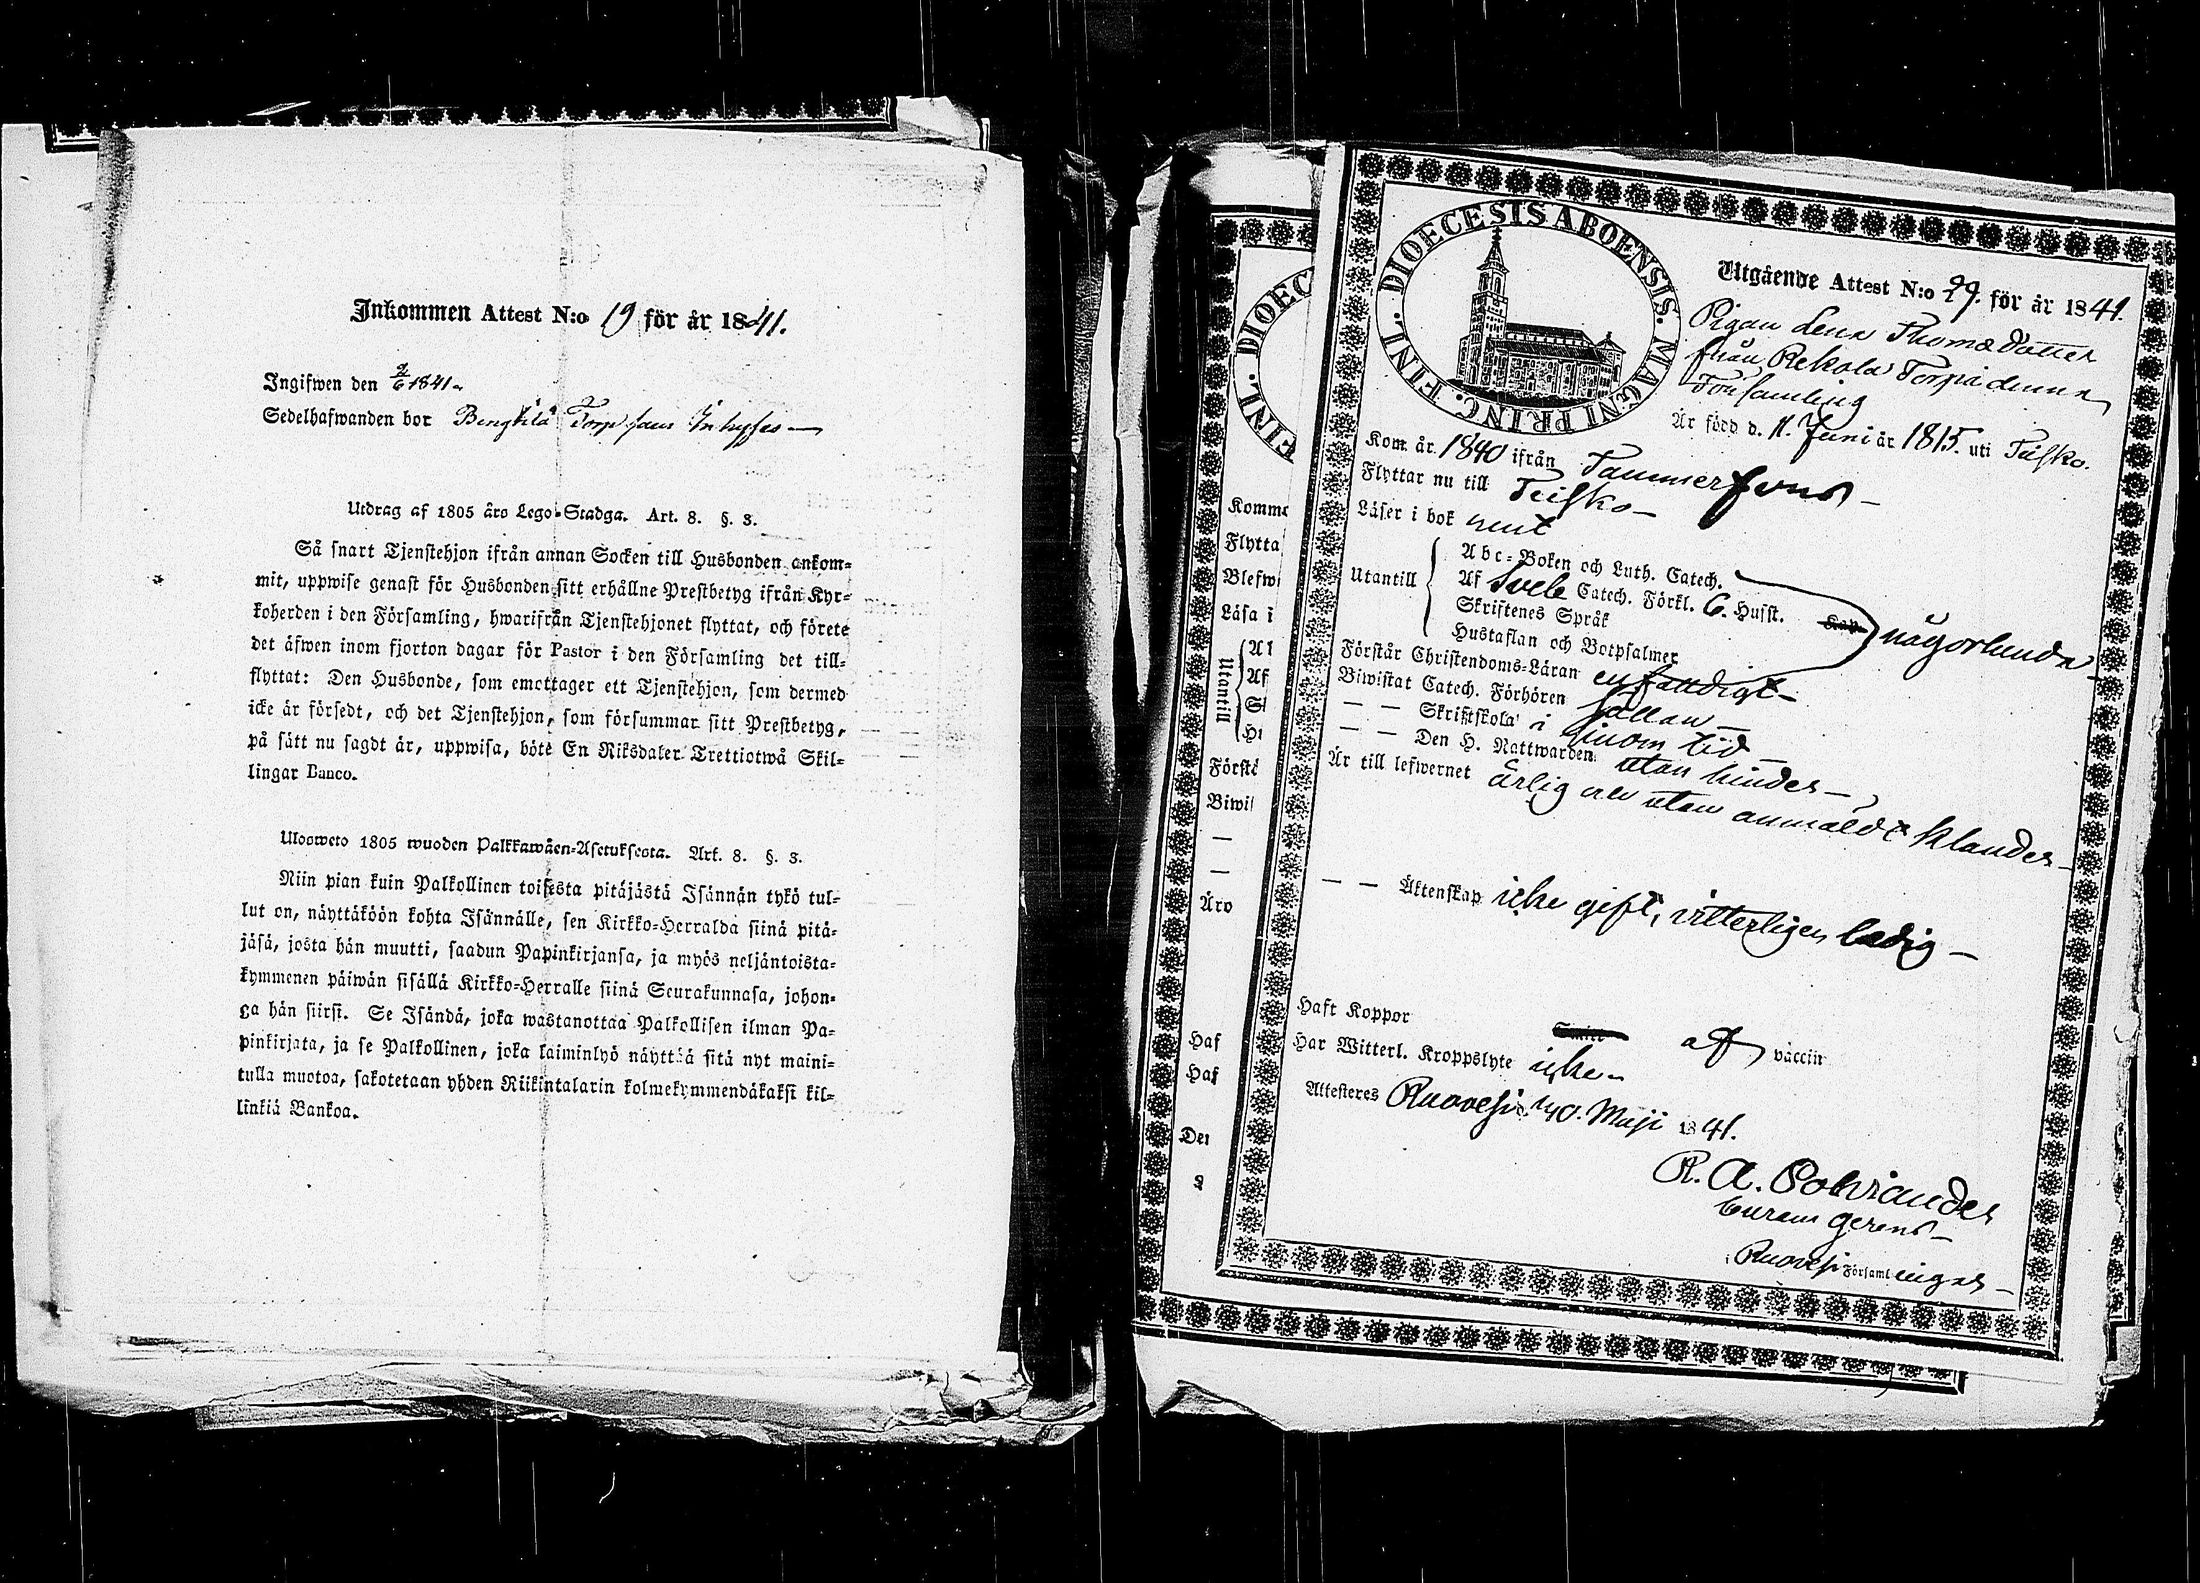 Inkommen Attest N:o 19 för år 1841.
Ingifwen den 2/6 1841.
Sedelhafwanden bor Bengtilä Torp
Utdrag af 1805 års Lego-Stadga. Art. 8. §. 3.
Så snart Tjenstehjon ifrån annan Socken till Husbonden ankom-
mit, uppwise genast för Husbonden sitt erhållne Prestbetyg ifrån Kyr-
koherden i den Församling, hwarifrån Tjenstehjonet flyttat, och förete
det äfwen inom fjorton dagar för Pastor i den Församling det till-
flyttat: Den Husbonde, som emottager ett Tjenstehjon, som dermed
icke är försedt, och det Tjenstehjon, som försummar sitt Prestbetyg,
på sätt nu sagdt är, uppwisa, böte En Riksdaler Trettiotwå Skil-
lingar Banco.
Ulosweto 1805 wuoden Palkkawäen-Asetuksesta. Art. 8. §. 3.
Niin pian kuin Palkollinen toisesta pitäjästä Isännän tykö tul-
lut on, näyttäköön kohta Isännälle, sen Kirkko-Herralda siinä pitä-
jäsä, josta hän muutti, saadun Papinkirjansa, ja myös neljäntoista-
kymmenen päiwän sisällä Kirkko-Herralle siinä Seurakunnasa, johon-
ga hän siirsi. Se Isändä, joka wastanottaa Palkollisen ilman Pa-
pinkirjata, ja se Palkollinen, joka laiminlyö näyttää sitä nyt maini-
tulla muotoa, sakotetaan yhden Riikintalarin kolmekymmendäkaksi kil-
linkiä Bankoa.
DIOEC
FINL.
Komme
Flytta
Blefw
Läsa i
Utantill
Al
Af
Förstå
Biwi
—
—
Äro
Haf
Haf
Der
DIOECESIS ABOENSIS. MAGNI PRINC. FINL.
Utgående Attest N:o 29. för år 1841.
Pigan Lena Thomædotter
från Rekola Torp i denna
Församling
Är född d. 11. Juni år 1815. uti Teisko.
Kom år 1840 ifrån Tammerfors —
Flyttar nu till Teisko —
Läser i bok rent
Utantill
Abc-Boken och Luth. Catech.
Af Svebe Catech. Förkl. 6. Husst.
Skriftenes Språk
Hustaflan och Botpsalmer
någorlunda
Förstår Christendoms-Läran enfaldigt —
Biwistat Catech. Förhören sällan —
— — Skriftskola i sinom tid —
— — Den H. Nattwarden utan hinder —
Är till lefwernet ärlig och utan anmäldt klander —
— — Äktenskap icke gift, vitterligen ledig —
Haft Koppor af vaccin
Har Witterl. Kroppslyte icke —
Attesteres Ruovesi Maji 1841.
Curam gerens —
i Ruovesi Församlingar —